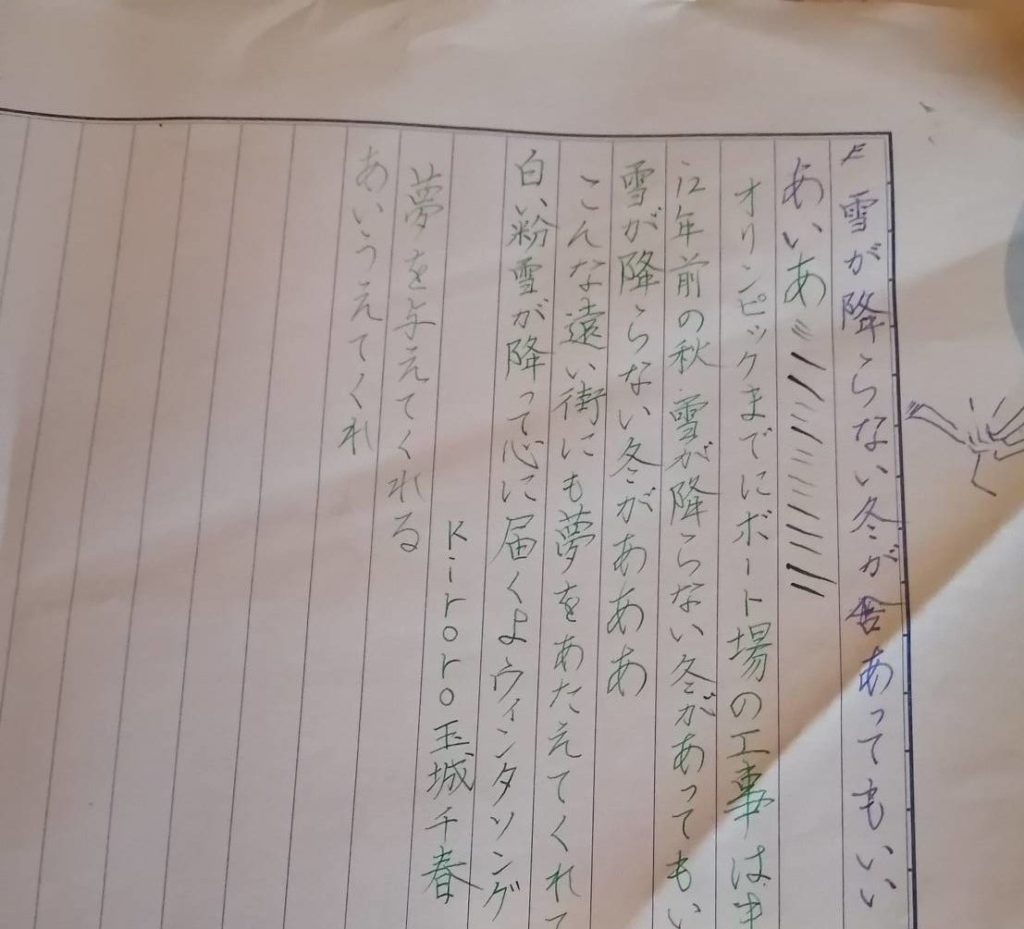 雪が降らない冬があってもいい
あいあ
オリンピックまでにボート場の工事は
12年前の秋雪が降らない冬があってもい
雪が降らない冬がああああ
こんな遠い街にも夢をあたえてくれて
白い粉雪が降って心に届くよウィンタソング
Kiroro玉城千春
夢を与えてくれる
あいうえてくれ